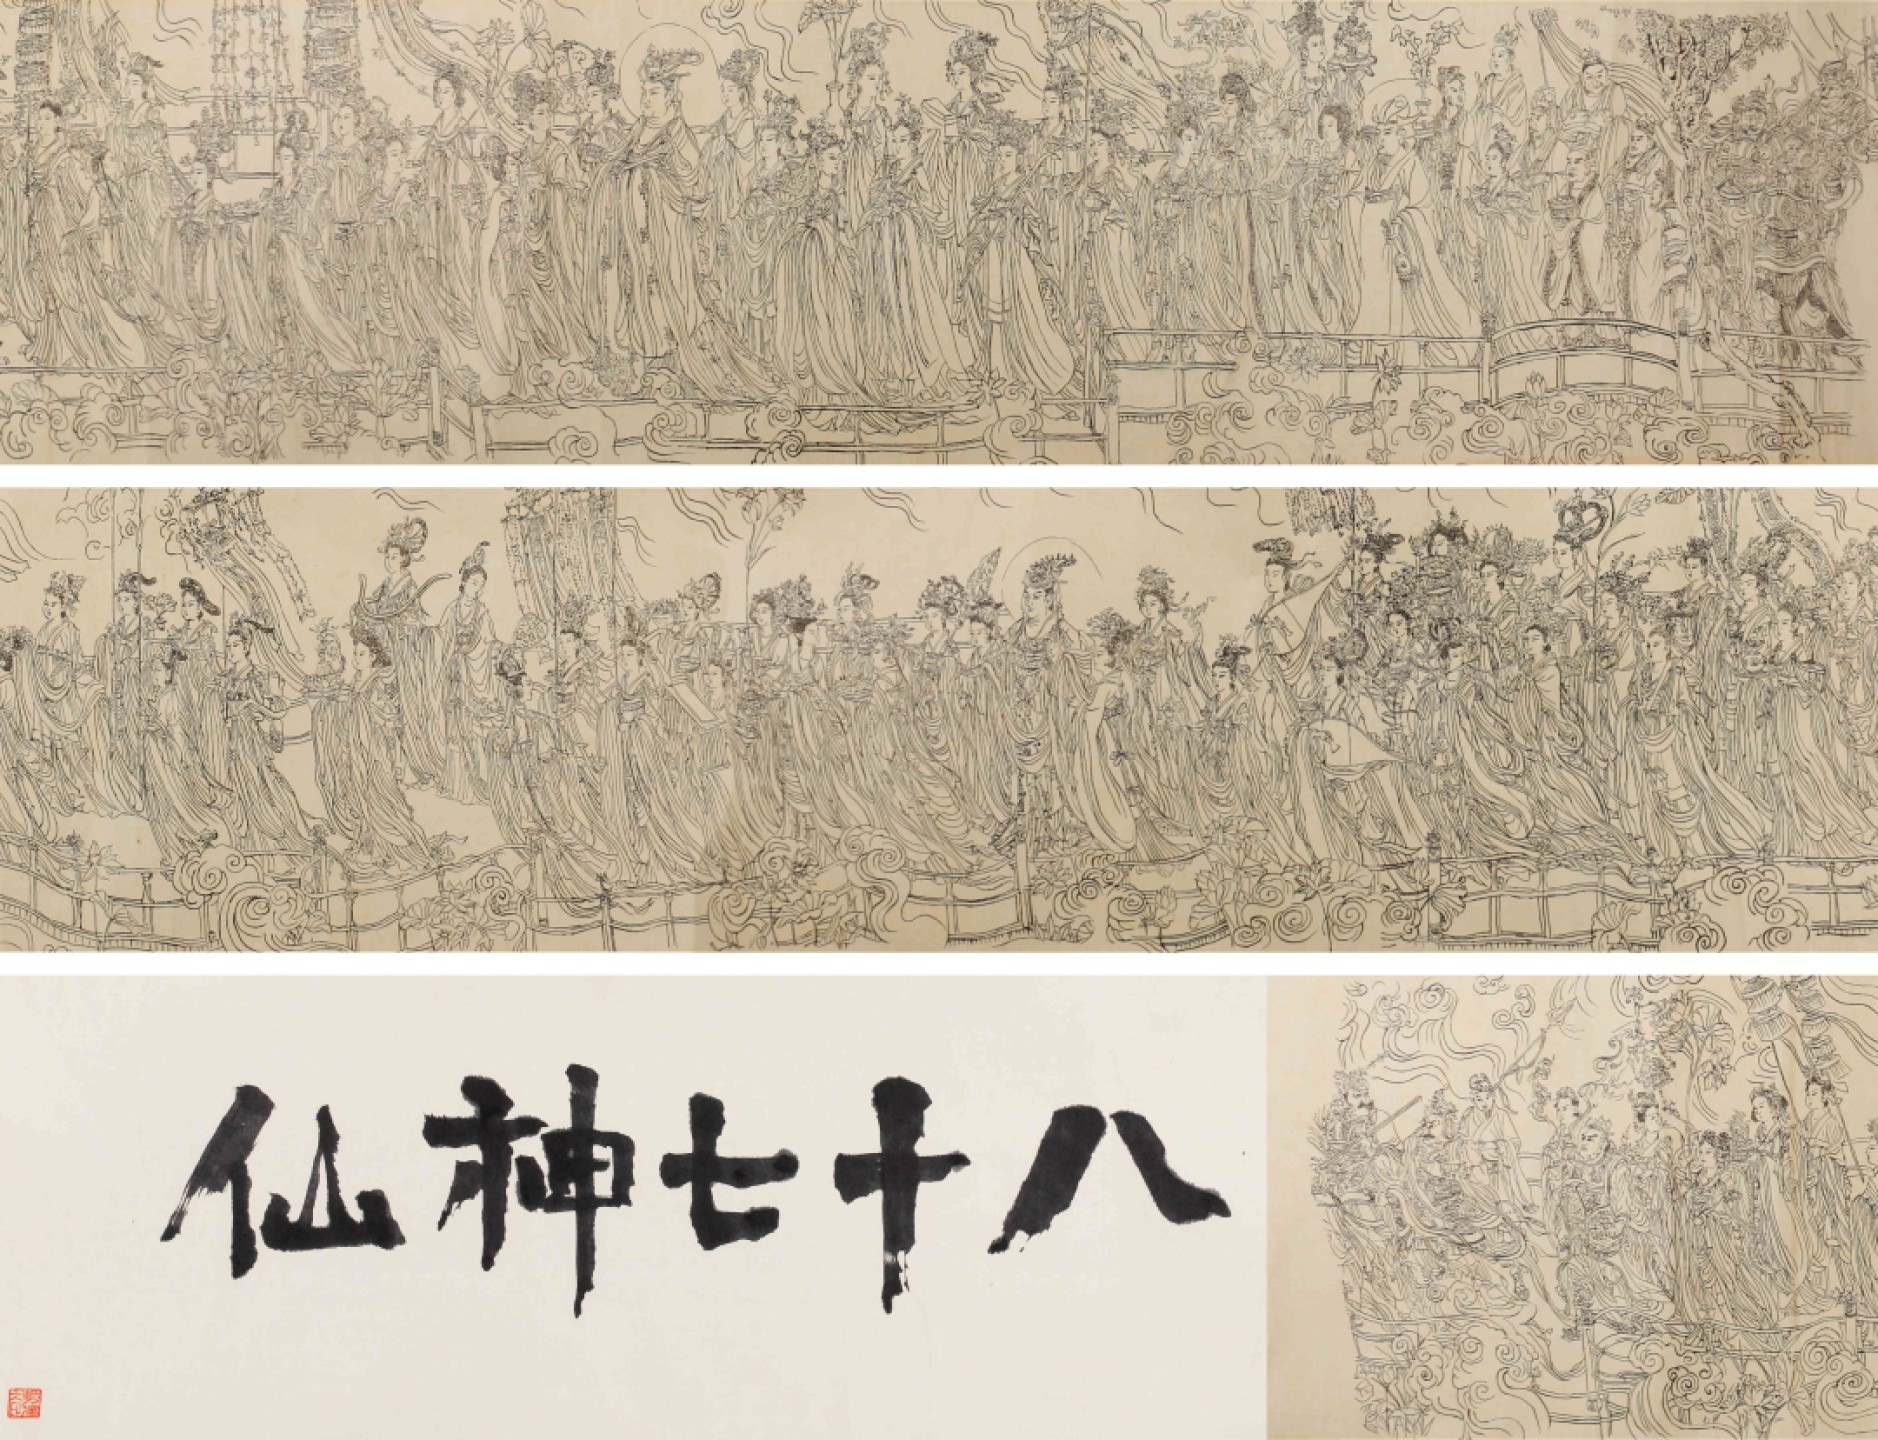 八十七神仙